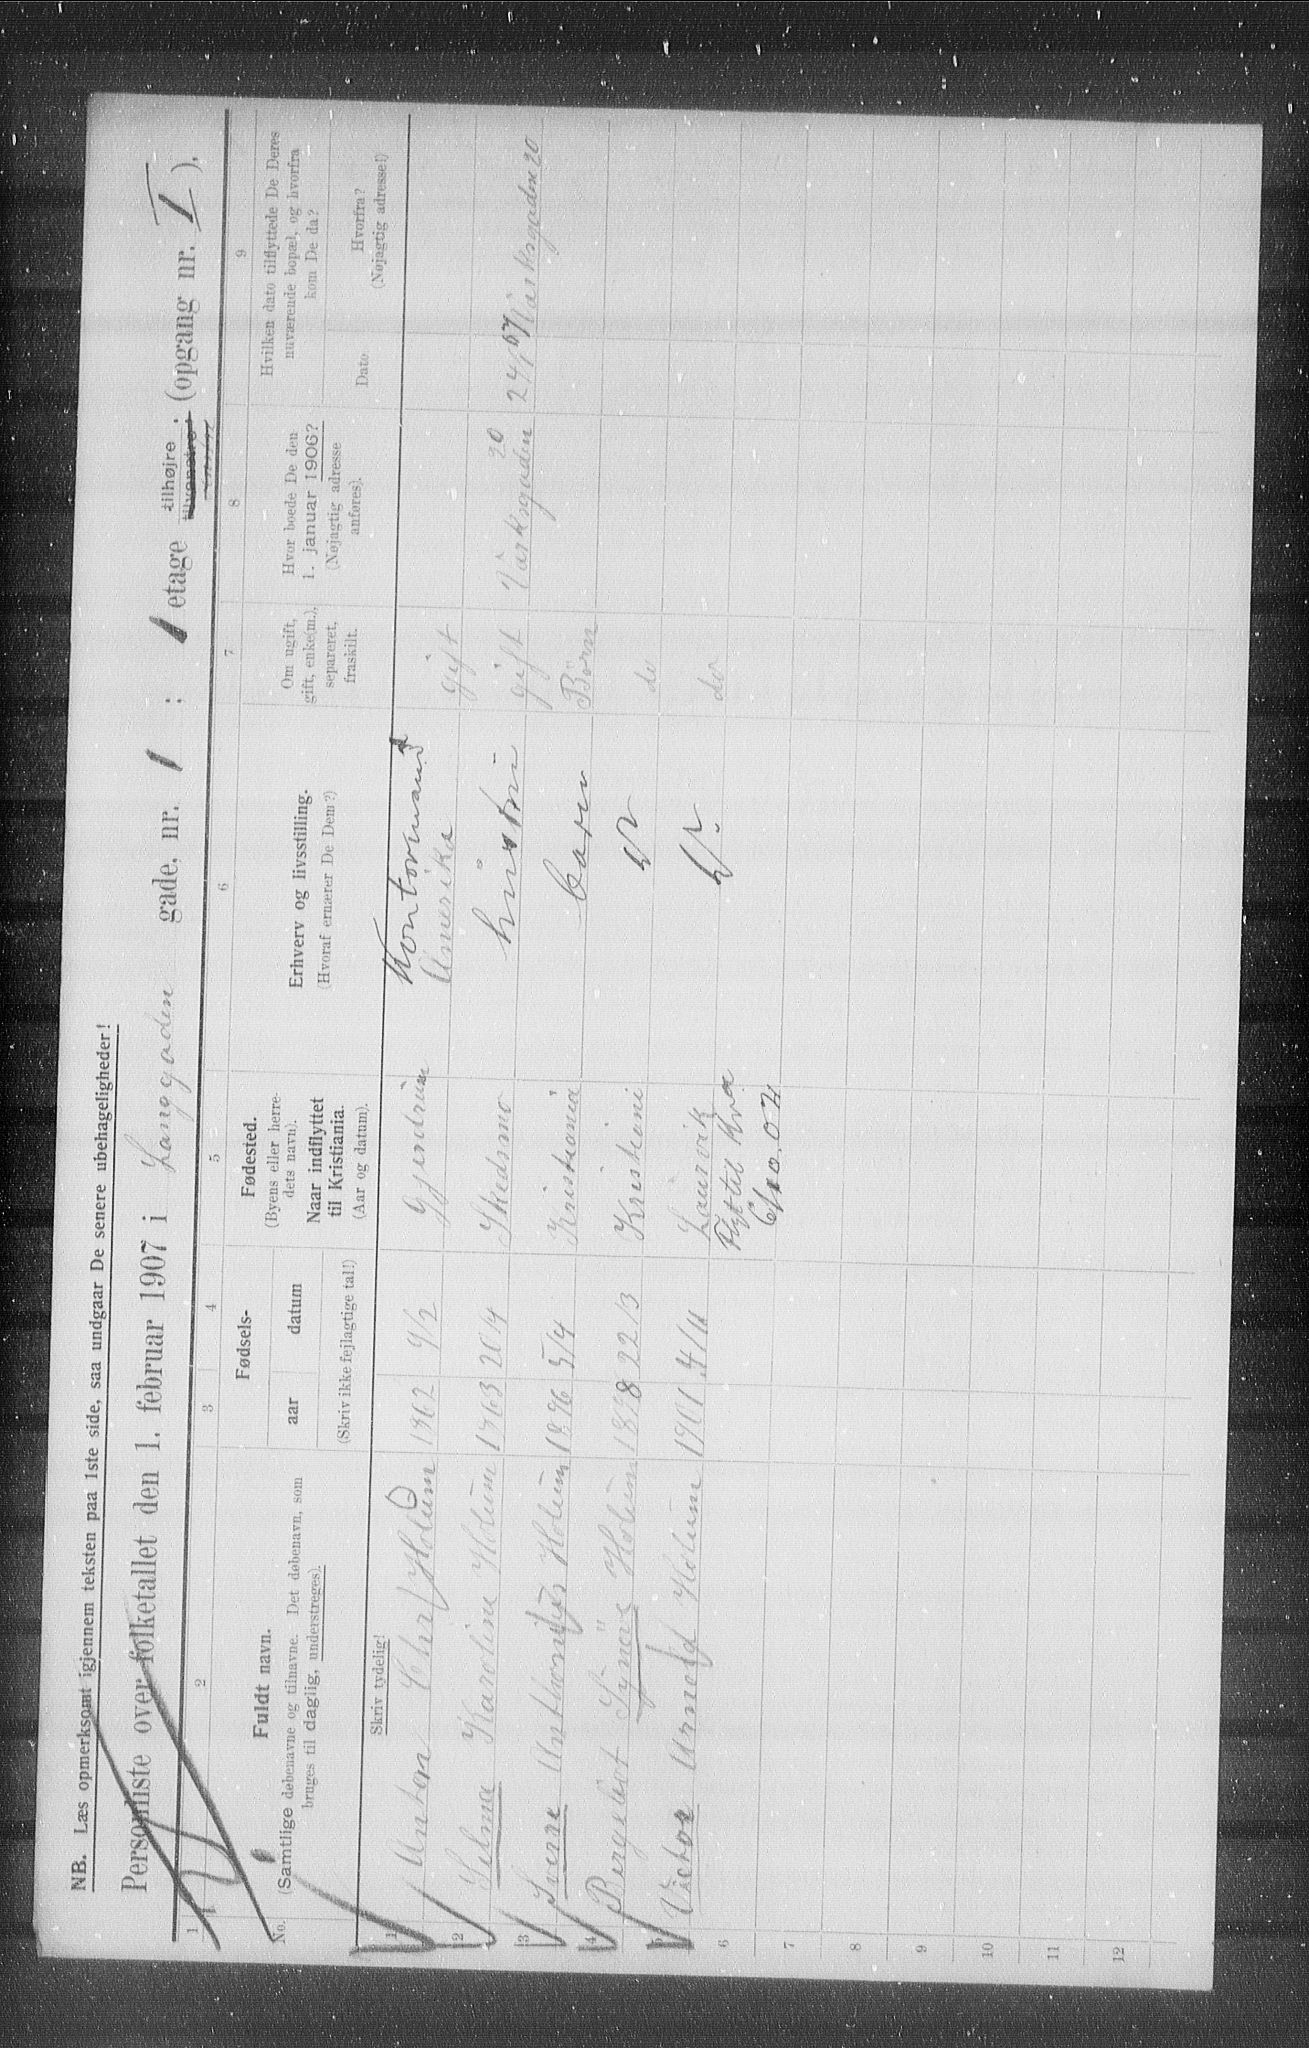 NB. Læs opmerksomt igjennem teksten paa 1ste side, saa undgaar De senere ubehageligheder!
Personliste over folketallet den 1. februar 1907 i Langgaden gade, nr. 1 ; 1 etage tilhøjre ; tilvenstre ; (opgang nr. I ),
1 2 3 4 5 6 7 8 9
No.
Fuldt navn.
(Samtlige døbenavne og tilnavne. Det døbenavn, som
bruges til daglig, understreges).
Fødsels-
aar datum
Fødested.
(Byens eller herre-
dets navn).
Naar indflyttet
til Kristiania.
(Aar og datum).
Erhverv og livsstilling.
(Hvoraf ernærer De Dem?)
Om ugift,
gift, enke(m.),
separeret,
fraskilt.
Hvor boede De den
1. januar 1906?
(Nøjagtig adresse
anføres).
Hvilken dato tilflyttede De Deres
nuværende bopæl, og hvorfra
kom De da?
Dato
Hvorfra?
(Nøjagtig adresse!)
Skriv tydelig!
(Skriv ikke fejlagtige tal!)
1 Anton Chr Holum 1862 9/2 Gjendrum Kontormand Amerika gift
2 Selma Karoline Holum 1863 20/4 Skedsmo hustru gift Værksgaden 20 24/1 07 Værksgaden 20
3 Sverre Holum 1896 5/4 Kristiania barn Børn
4 Holum 1898 22/3 Kristiani do
5 Victor Arnold Holum 1901 4/11 Laurvik do
6 Flyttet Kra
7 6/10.04
8
9
10
11
12